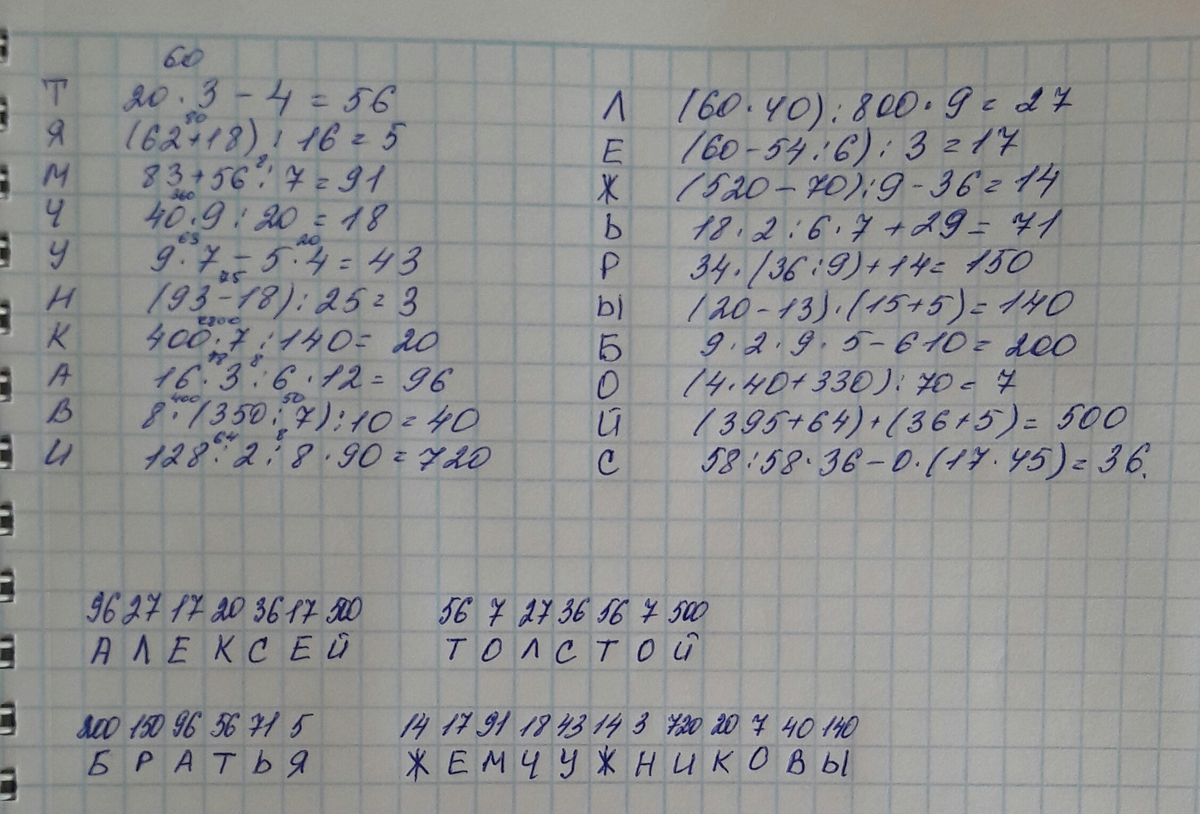 60
Т 20 · 3 - 4 = 56
80
Я (62+18) : 16 = 5
8
М 83+56 : 7 = 91
360
Ч 40 · 9 : 20 = 18
63 20
У 9 · 7 - 5 · 4 = 43
75
Н (93-18) : 25 = 3
2800
К 400 · 7 : 140 = 20
48 8
А 16 · 3 : 6 · 12 = 96
400 50
В 8 · (350 : 7) : 10 = 40
64 8
И 128 : 2 : 8 · 90 = 720
Л (60 · 40) : 800 · 9 = 27
Е (60-54 : 6) : 3 = 17
Ж (520-70) : 9 - 36 = 14
Ь 18 · 2 : 6 · 7 + 29 = 71
Р 34 · (36 : 9) + 14 = 150
Ы (20-13) · (15+5) = 140
Б 9 · 2 · 9 · 5 - 610 = 200
О (4 · 40+330) : 70 = 7
Й (395+64) + (36+5) = 500
С 58 : 58 · 36 - 0 · (17 · 45) = 36.
96 27 17 20 36 17 500 56 7 27 36 56 7 500
А Л Е К С Е Й Т О Л С Т О Й
200 150 96 56 71 5 14 17 91 18 43 14 3 720 20 7 40 140
Б Р А Т Ь Я Ж Е М Ч У Ж Н И К О В Ы